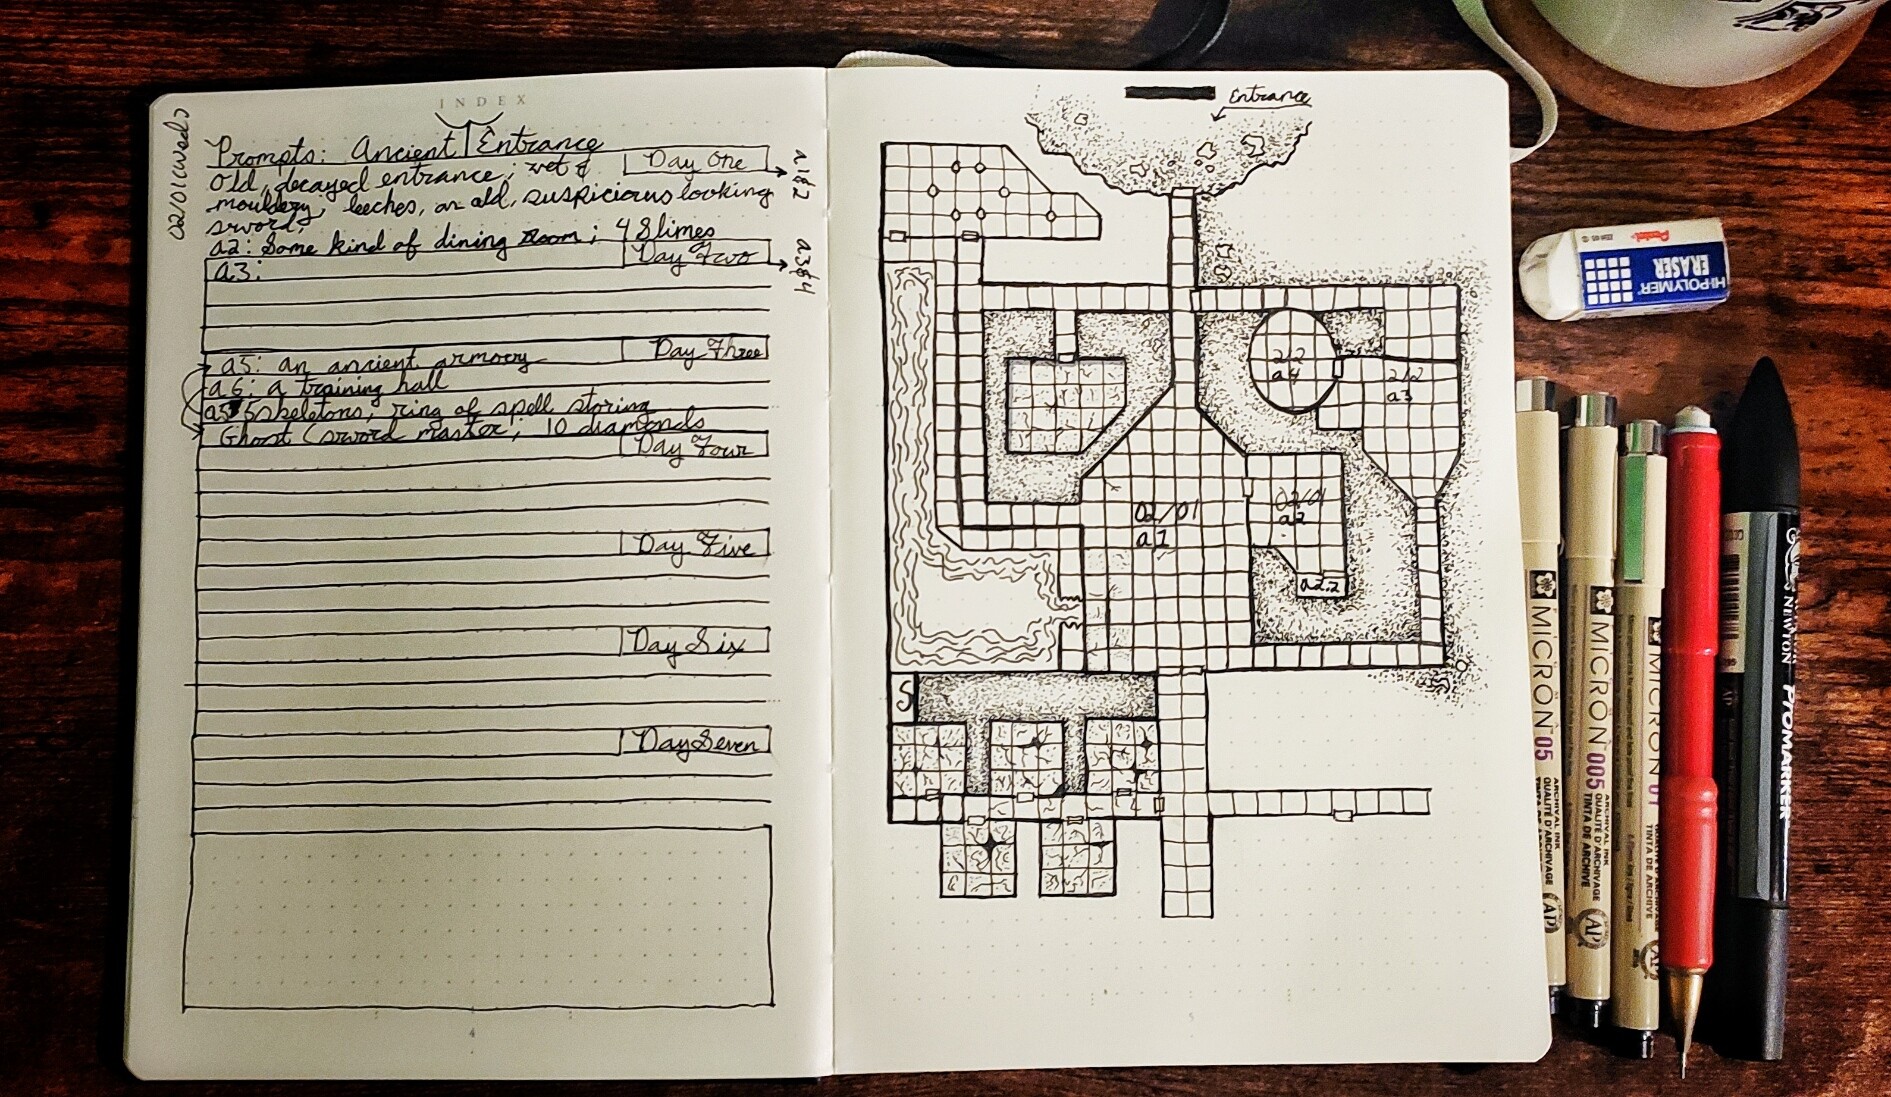 INDEX
02/01(Wed)
Prompts: Ancient Entrance
Day One
Old, decayed entrance; wet &
mouldery, leeches, an old, suspicious looking
sword;
a2: Some kind of dining room; 4 Slimes
a1&2
Day Two
a3:
a3&4
Day Three
a5: an ancient armory
a6: a training hall
a5 skeletons; ring of spell storing
Ghost (sword master; 10 diamonds
Day Four
Day Five
Day Six
Day Seven
4
Entrance
2/2
a4
2/2
a3
02/01
a1
02/01
a2
a2.2
S
5
Pentel
HI-POLYMER
ERASER
MICRON 05
MICRON 005
MICRON 01
ARCHIVAL INK
QUALITÉ D'ARCHIVAGE
TINTA DE ARCHIVE
AP
NEWTON PROMARKER